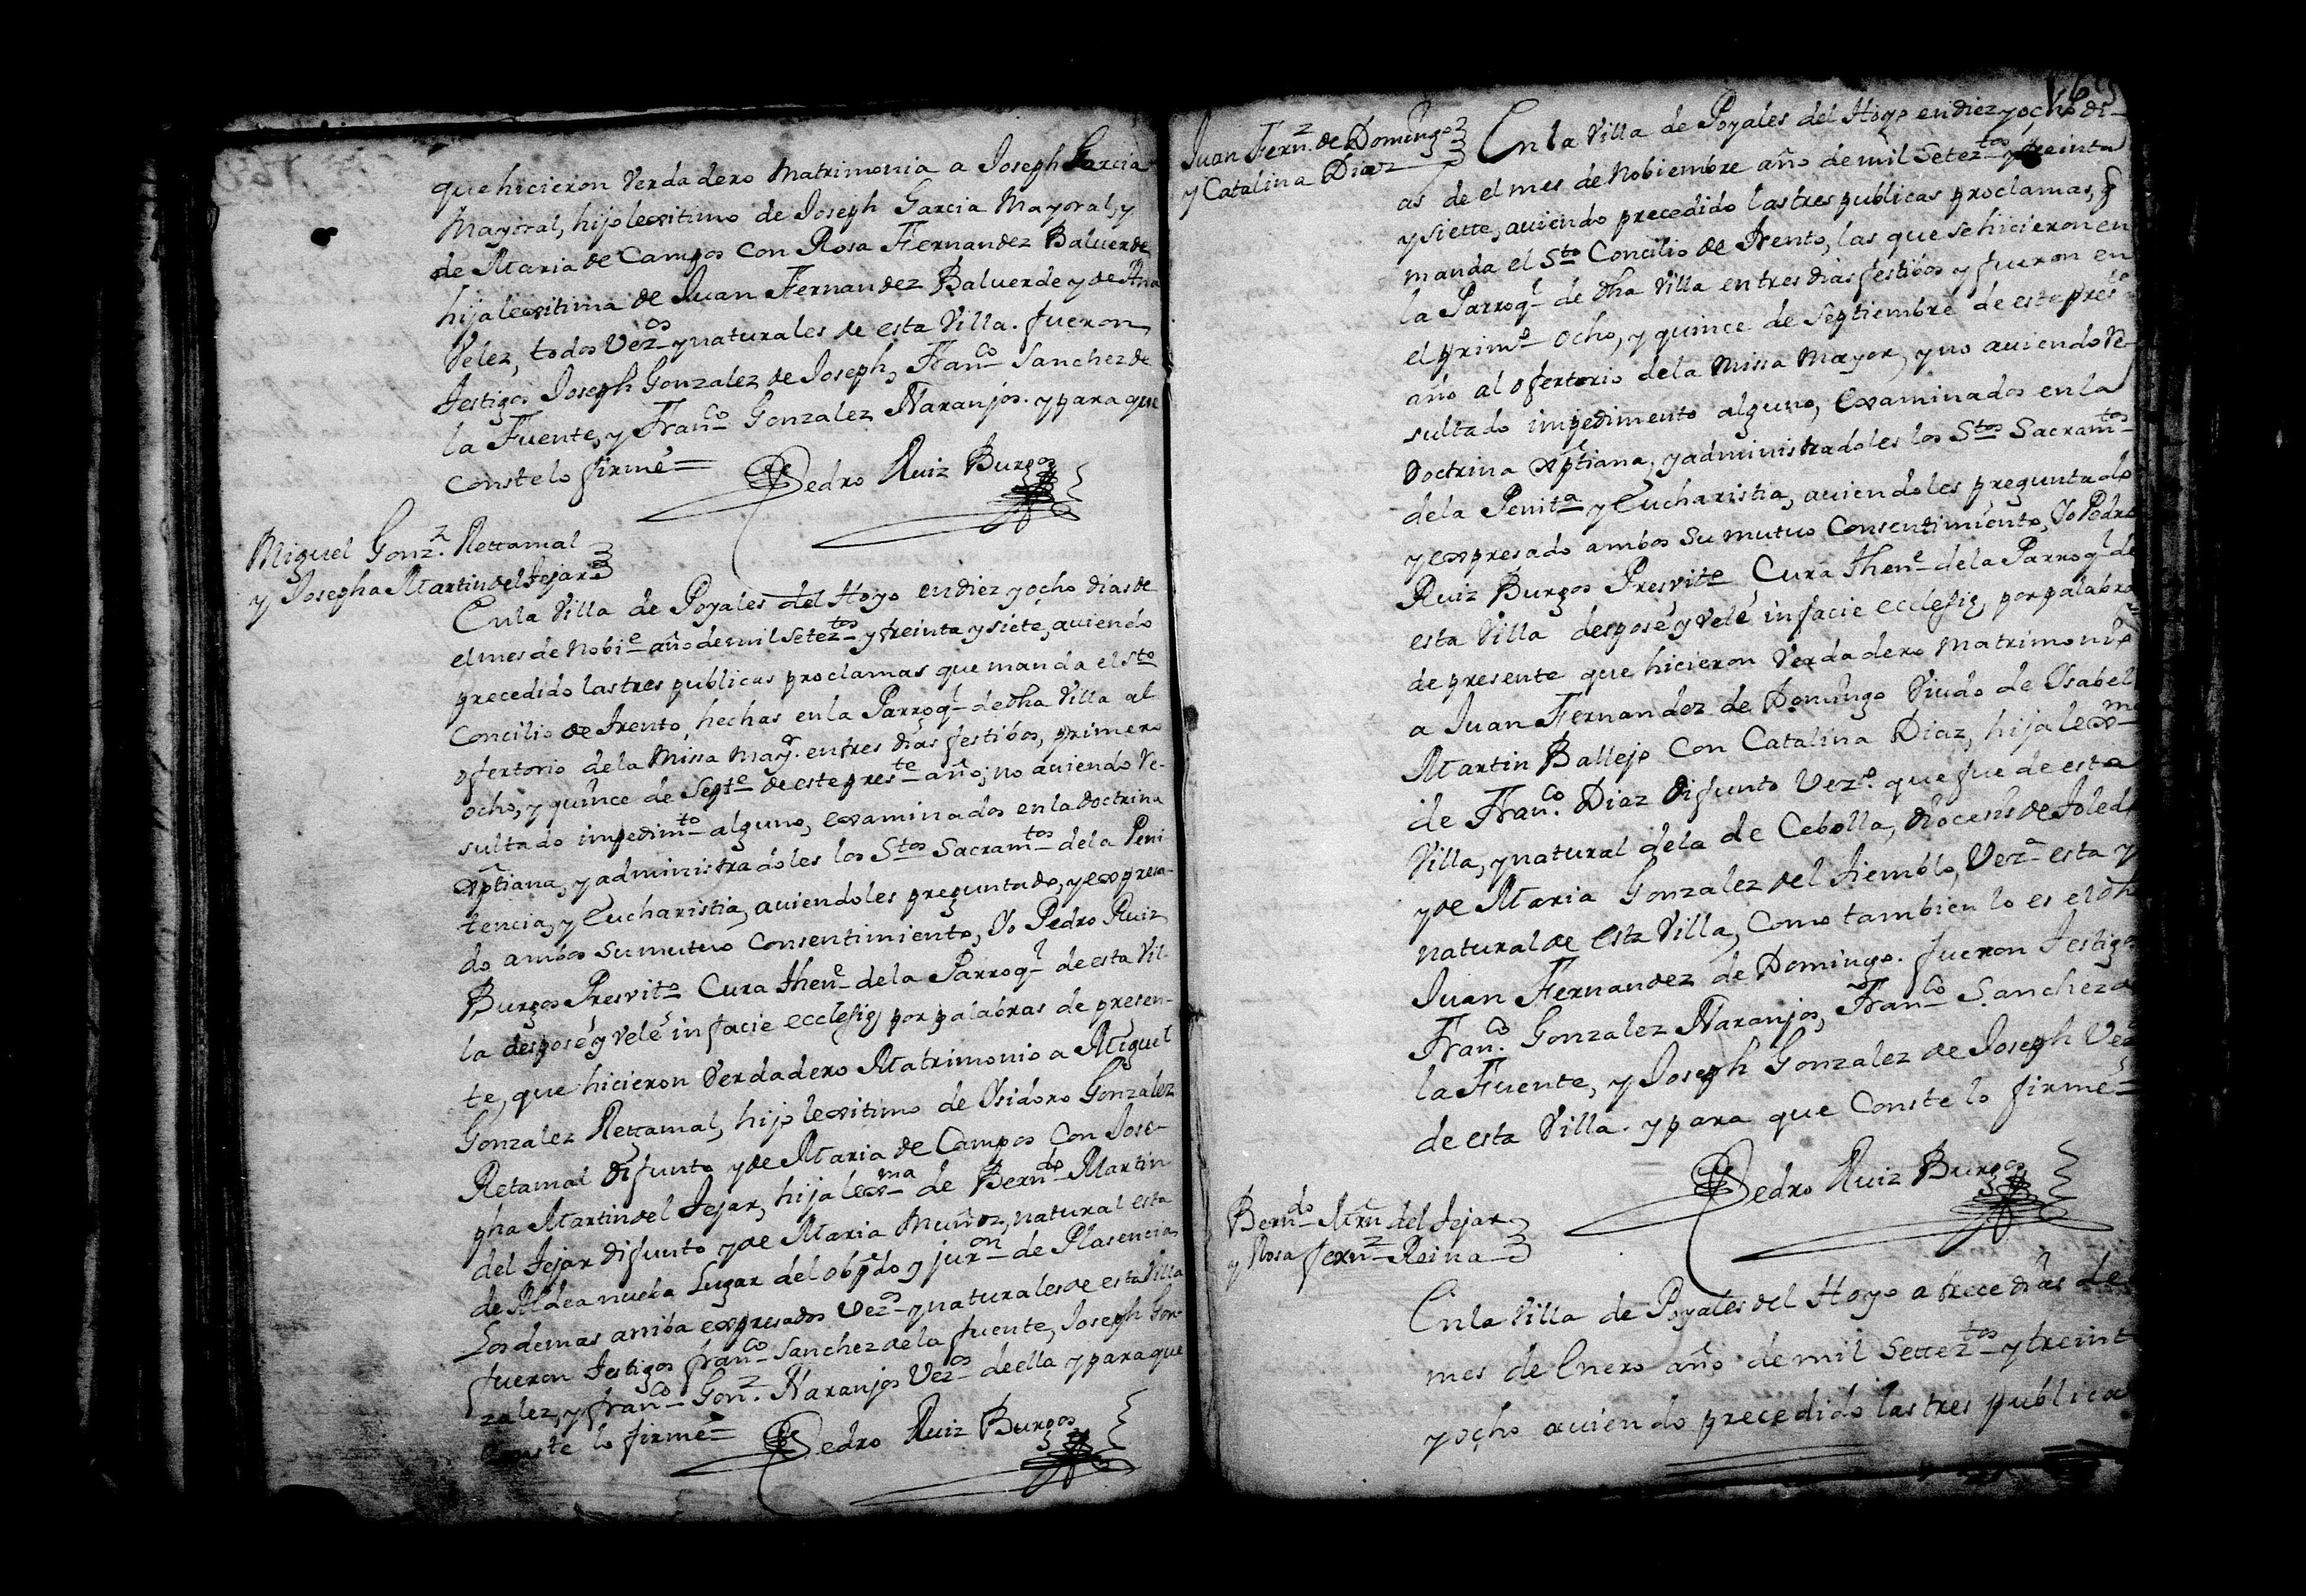 que hicieron Verdadero Matrimonia a Joseph Garcia
Mayoral, hijo lexitimo de Joseph Garcia Mayoral, y
de Maria de Campos con Rosa Fernandez Baluerde
hija lexitima de Juan Fernandez Baluerde y de Ana
Velez, todos Vezos y naturales de esta Villa. fueron
testigos Joseph Gonzalez de Joseph, Franco Sanchez de
la Fuente, y Franco Gonzalez Naranjos. y para que
Conste lo firmé =
Pedro Ruiz Burgos
Miguel Gonz. Rettamal
y Josepha Martin del Tejar
En la Villa de Poyales del Hoyo en diez y ocho dias de
el mes de Nobie año de mil Seteztos y treinta y siete, auiendo
precedido las tres publicas proclamas que manda el Sto
Concilio de trento, hechas en la Parroql de dha Villa al
ofertorio de la Missa mayr. en tres dias festibos, primero
ocho, y quince de Septe de este preste año; no auiendo Re-
sultado impedimto alguno, examinados en la doctrina
xptiana, y administradoles los Stos Sacramtos de la Peni
tencia, y Eucharistia, auiendoles preguntado, y expresa-
do ambos su mutuo Consentimiento, Yo Pedro Ruiz
Burgos Presvito Cura thene de la Parroql de esta Vil-
la despose y velé in facie ecclesię por palabras de presen-
te, que hicieron Verdadero Matrimonio a Miguel
Gonzalez Rettamal, hijo lexitimo de Ysidoro Gonzalez
Retamal difunto y de Maria de Campos con Jose-
pha Martin del Tejar, hija lexma de Berndo Martin
del Tejar difunto y de Maria Muñoz, natural esta
de Aldea nueba Lugar del obpdo y juron de Plasencia
Los demas arriba expresados Vezos y naturales de esta Villa
fueron testigos franco Sanchez de la fuente, Joseph Gon-
zalez, y franco Gonz. Naranjos Vezos de ella y para que
Conste lo firmé =
Pedro Ruiz Burgos
Juan Fernz. de Domingo
y Catalina Diaz
En la Villa de Poyales del Hoyo en diez y ocho di-
as de el mes de Nobiembre año de mil Seteztos y treinta
y siette, auiendo precedido las tres publicas proclamas, q
manda el Sto Concilio de trento, las que se hicieron en
la Parroql de dha Villa en tres dias festibos y fueron en
el primo ocho, y quince de Septiembre de este preste
año al ofertorio de la Missa Mayor, y no auiendo Re-
sultado impedimento alguno, examinados en la
Doctrina xptiana, y administradoles los Stos Sacramtos
de la Penita y Eucharistia, auiendoles preguntado
y expresado ambos su mutuo Consentimiento, Yo Pedro
Ruiz Burgos Presvito Cura thene de la Parroql de
esta Villa despose y velé in facie ecclesię, por palabras
de presente que hicieron Verdadero Matrimonio
a Juan Fernandez de Domingo Viudo de Ysabel
Martin Ballejo con Catalina Diaz, hija lexma
de Franco. Diaz difunto Vezo. que fue de esta
Villa, y natural de la de Cebolla, diocesis de Toledo
y de Maria Gonzalez del Tiemblo, Veza esta y
natural de esta Villa, Como tambien lo es el dho
Juan Fernandez de Domingo. fueron testigos
Franco. Gonzalez Naranjos, Franco Sanchez de
la Fuente, y Joseph Gonzalez de Joseph Vezos
de esta Villa. y para que Conste lo firmé =
Pedro Ruiz Burgos
Berndo Mrn del Tejar
y Rosa fernz Reina
En la Villa de Poyales del Hoyo a trece dias de
mes de Enero año de mil Setteztos y treint
y ocho auiendo precedido las tres publica